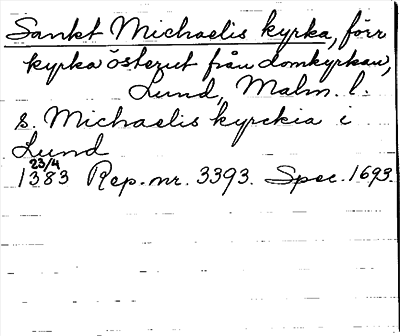 Sankt Michaelis kyrka, förr
kyrka österut från domkyrkan,
Lund, Malm. l.
s. Michaelis kyrckia i
Lund
23/4
1383 Rep. nr. 3393. Spec. 1693.